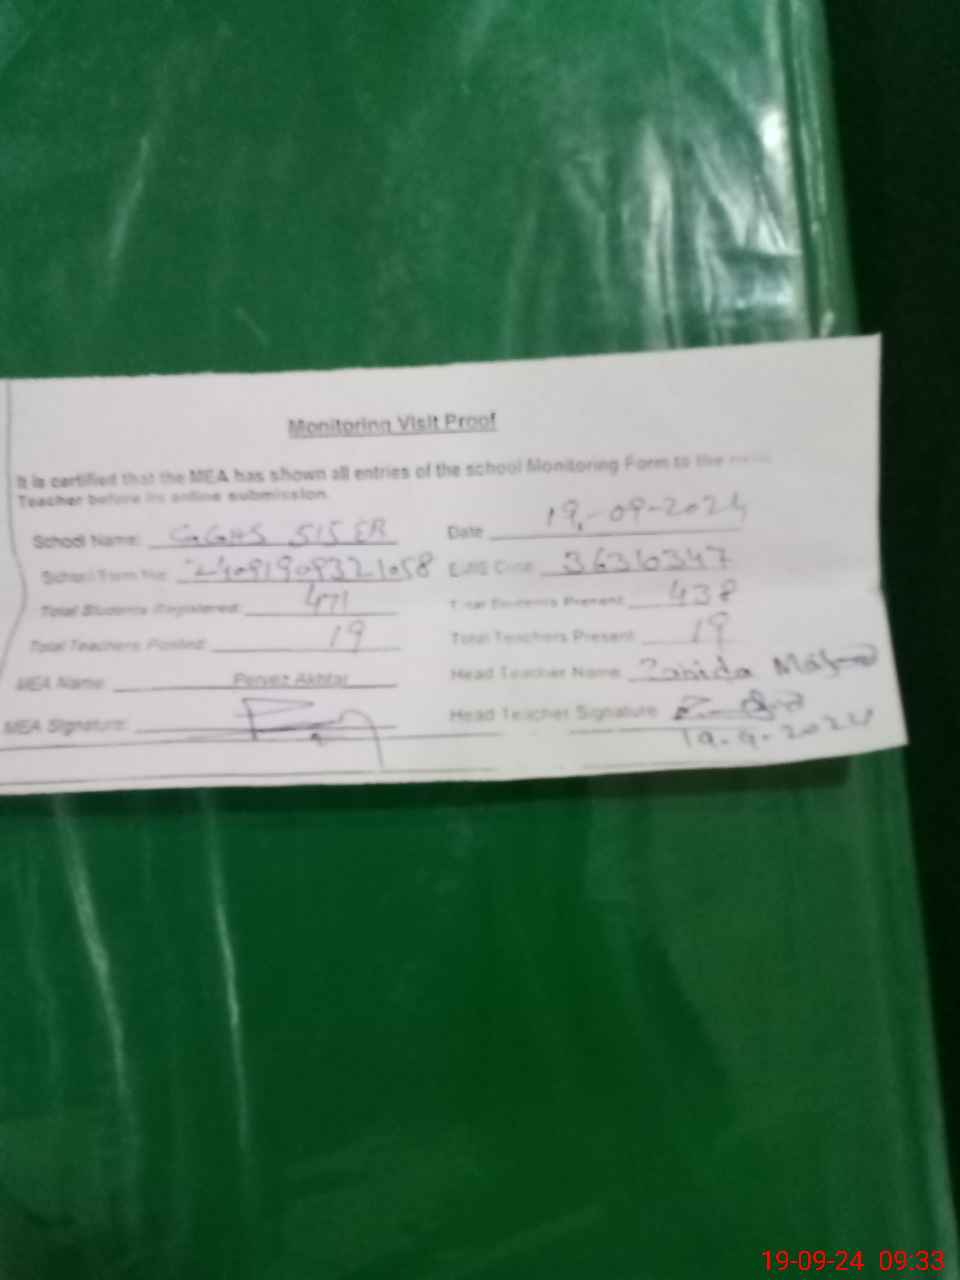 Monitoring Visit Proof
It is certified that the MEA has shown all entries of the school Monitoring Form to the
Teacher before its online submission.
School Name: GGHS 515 EB Date 19-09-2024
School Form No: 24091909321058 EMIS Code 36310347
Total Students Registered: 471 Total Students Present 438
Total Teachers Posted: 19 Total Teachers Present 19
MEA Name: Pervez Akhtar Head Teacher Name Zahida
MEA Signature: Head Teacher Signature
19-9-2024
19-09-24 09:33